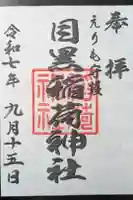 奉拝
えりも岬鎮
目黒稲荷神社
令和七年九月十五日